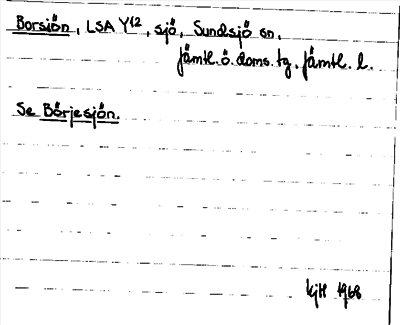 Borsjön, LSA Y12, sjö, Sundsjö sn,
Jämtl. ö. doms. tg. Jämtl. l.
Se Börjesjön.
KjH 1968